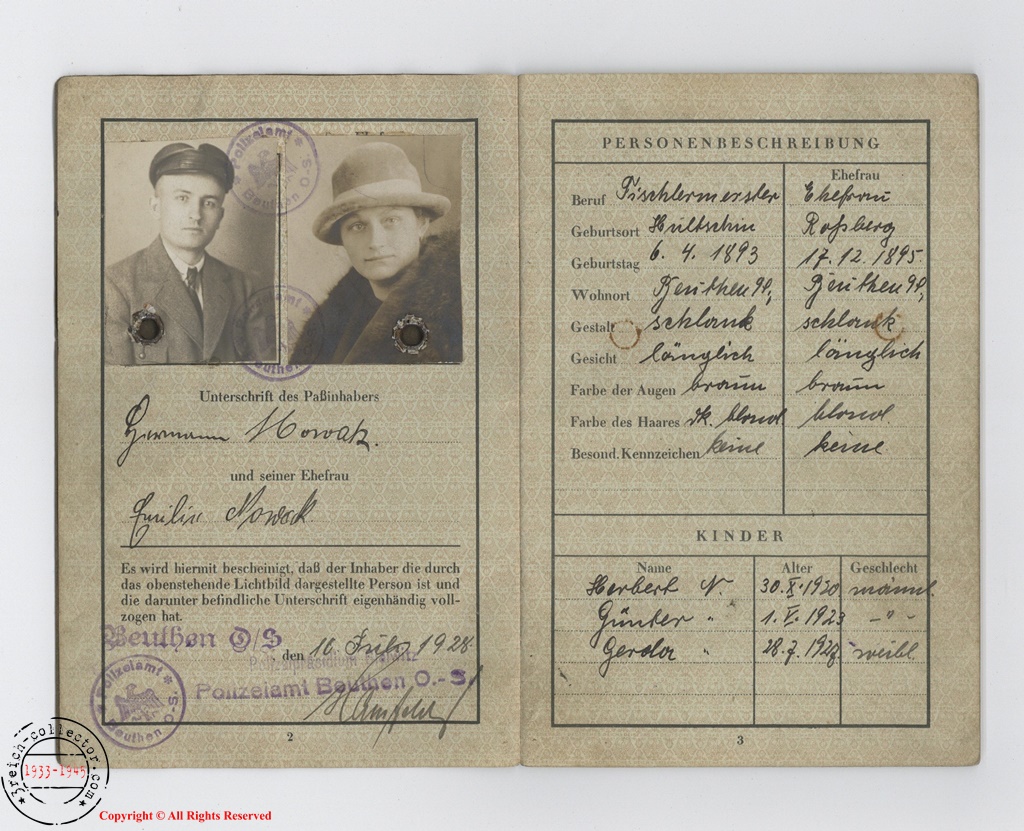 Polizeiamt
Beuthen O-S.
Unterschrift des Paßinhabers
Hermann Nowak.
und seiner Ehefrau
Emilie Nowak
Es wird hiermit bescheinigt, daß der Inhaber die durch
das obenstehende Lichtbild dargestellte Person ist und
die darunter befindliche Unterschrift eigenhändig voll-
zogen hat.
Beuthen O/S
den 10. July 1928.
Polizeiamt Beuthen O.-S.
Polizeiamt
Beuthen O-S.
2
PERSONENBESCHREIBUNG
Ehefrau
Beruf Tischlermeister Ehefrau
Geburtsort Hultschin Roßberg
Geburtstag 6. 4. 1893 17. 12. 1895.
Wohnort Beuthen Beuthen
Gestalt schlank schlank
Gesicht länglich länglich
Farbe der Augen braun braun
Farbe des Haares dk. blond blond.
Besond. Kennzeichen keine keine
KINDER
Name Alter Geschlecht
Herbert N. 30.X.1920 männl.
Günter " 1.V.1923 -"-
Gerda " 28.7.1927 weibl.
3
3reich-collector.com
1933-1945
Copyright © All Rights Reserved